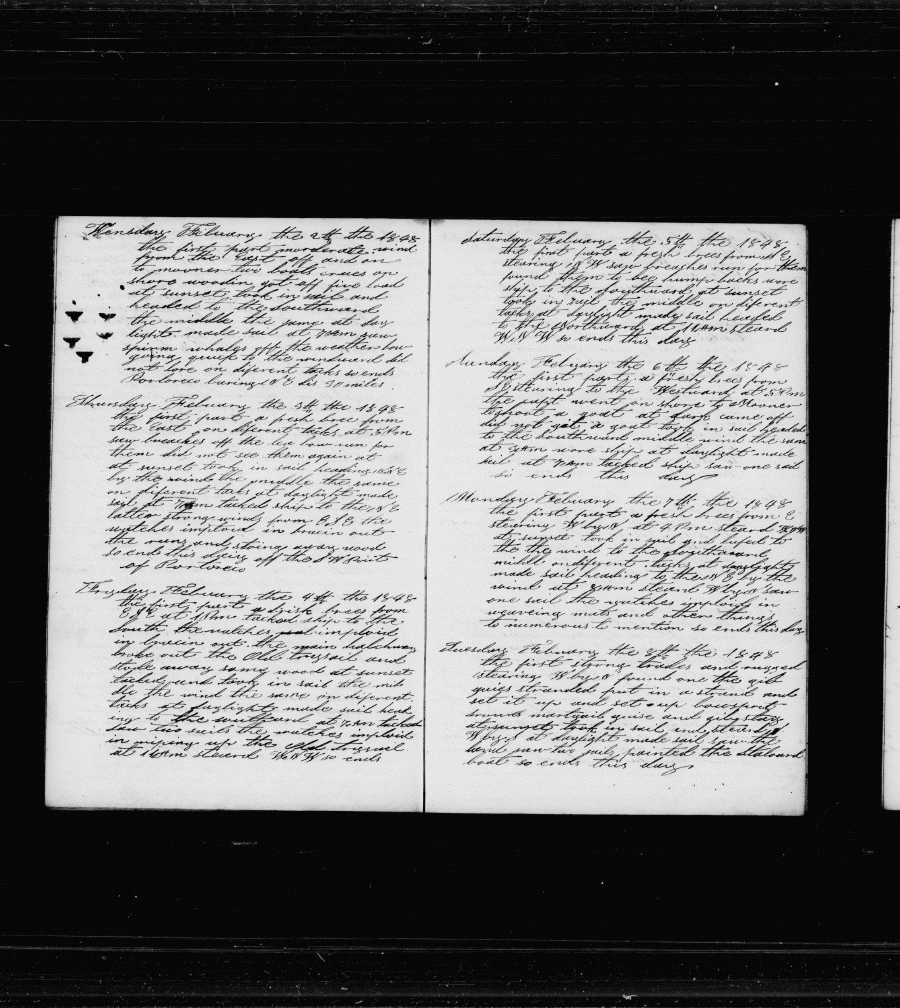 Wensday Febuary the 2th the 1848
the first part morderate wind
from the East off and on
to mooner two boats crues on
shore wooding got off five load
at sunset took in sail and
headed to the southward
the middle the same at day
light made sail at 7 Am saw
spirm whales off the weather bow
going quick to the windward did
not lore on diferent tacks so ends
Portoreco baring N E dis 30 miles
Thursday Febuary the 3th the 1848
the first part a fresh bree from
the East on diferent tacks at 5 Pm
saw breaches off the lee bow run for
them did not see them again at
at sunset took in sail heading N E
by the wind the middle the same
on diferent tacks at daylight made
sail at 7 Am tacked ship to the N E
latter strong wind from E N E the
watches imploid in brakin out
the runs and stoing away wood
so ends this day off the S W point
of Portoreco
Fryday Febuary the 4th the 1848
the first part a brisk brees from
E N E at 1 Pm tacked ship to the
South the watches imploid
in brakin out the main hatchway
broke out the Old trysail and
stode away some wood at sunset
tacked and took in sail the mid
dle the wind the same on diferent
tacks at daylight made sail head
ing to the southard at 7 Am tacked
saw two sails the watches imploid
in riping up the Old trysail
at 10 Am steard W N W so ends
Saturday Febuary the 5th the 1848
the first part a fresh brees from N E
stearing N W saw breaches run for them
found them to be hump backs wore
ship to the southward at sunset
took in sail the middle on diferent
tacks at daylight made sail headed
to the Northward at 11 Am steard
W N W so ends this day
Sunday Febuary the 6th the 1848
the first part a fresh brees from
stearing to the Westward at 3 Pm
the capt went on shore to Mooner
to shoot a goat at came off
did not get a goat took in sail headed
to the southward middle wind the same
at wore ship at daylight made
sail at 7 Am tacked ship saw one sail
so ends this day
Monday Febuary the 7th the 1848
the first part a fresh brees from E
stearing W by N at 4 Pm steard
at sunset took in sail and lufed to
the the wind to the southard
middle on diferent tacks at daylight
made sail heading to the N E by the
wind at 7 Am steard W by N saw
one sail the watches imploid in
weaveing mats and other things
to numerous to mention so ends this day
Tuesday Febuary the 8th the 1848
the first strong trades and rugged
stearing W by N found one the gib
guigs stranded put in a strand and
set it up and set up bowsprit
martgail guise and gibstay
at sunset took in sail and steard
W by N at daylight made sail saw the
land saw two sails painted the starboard
boat so ends this day